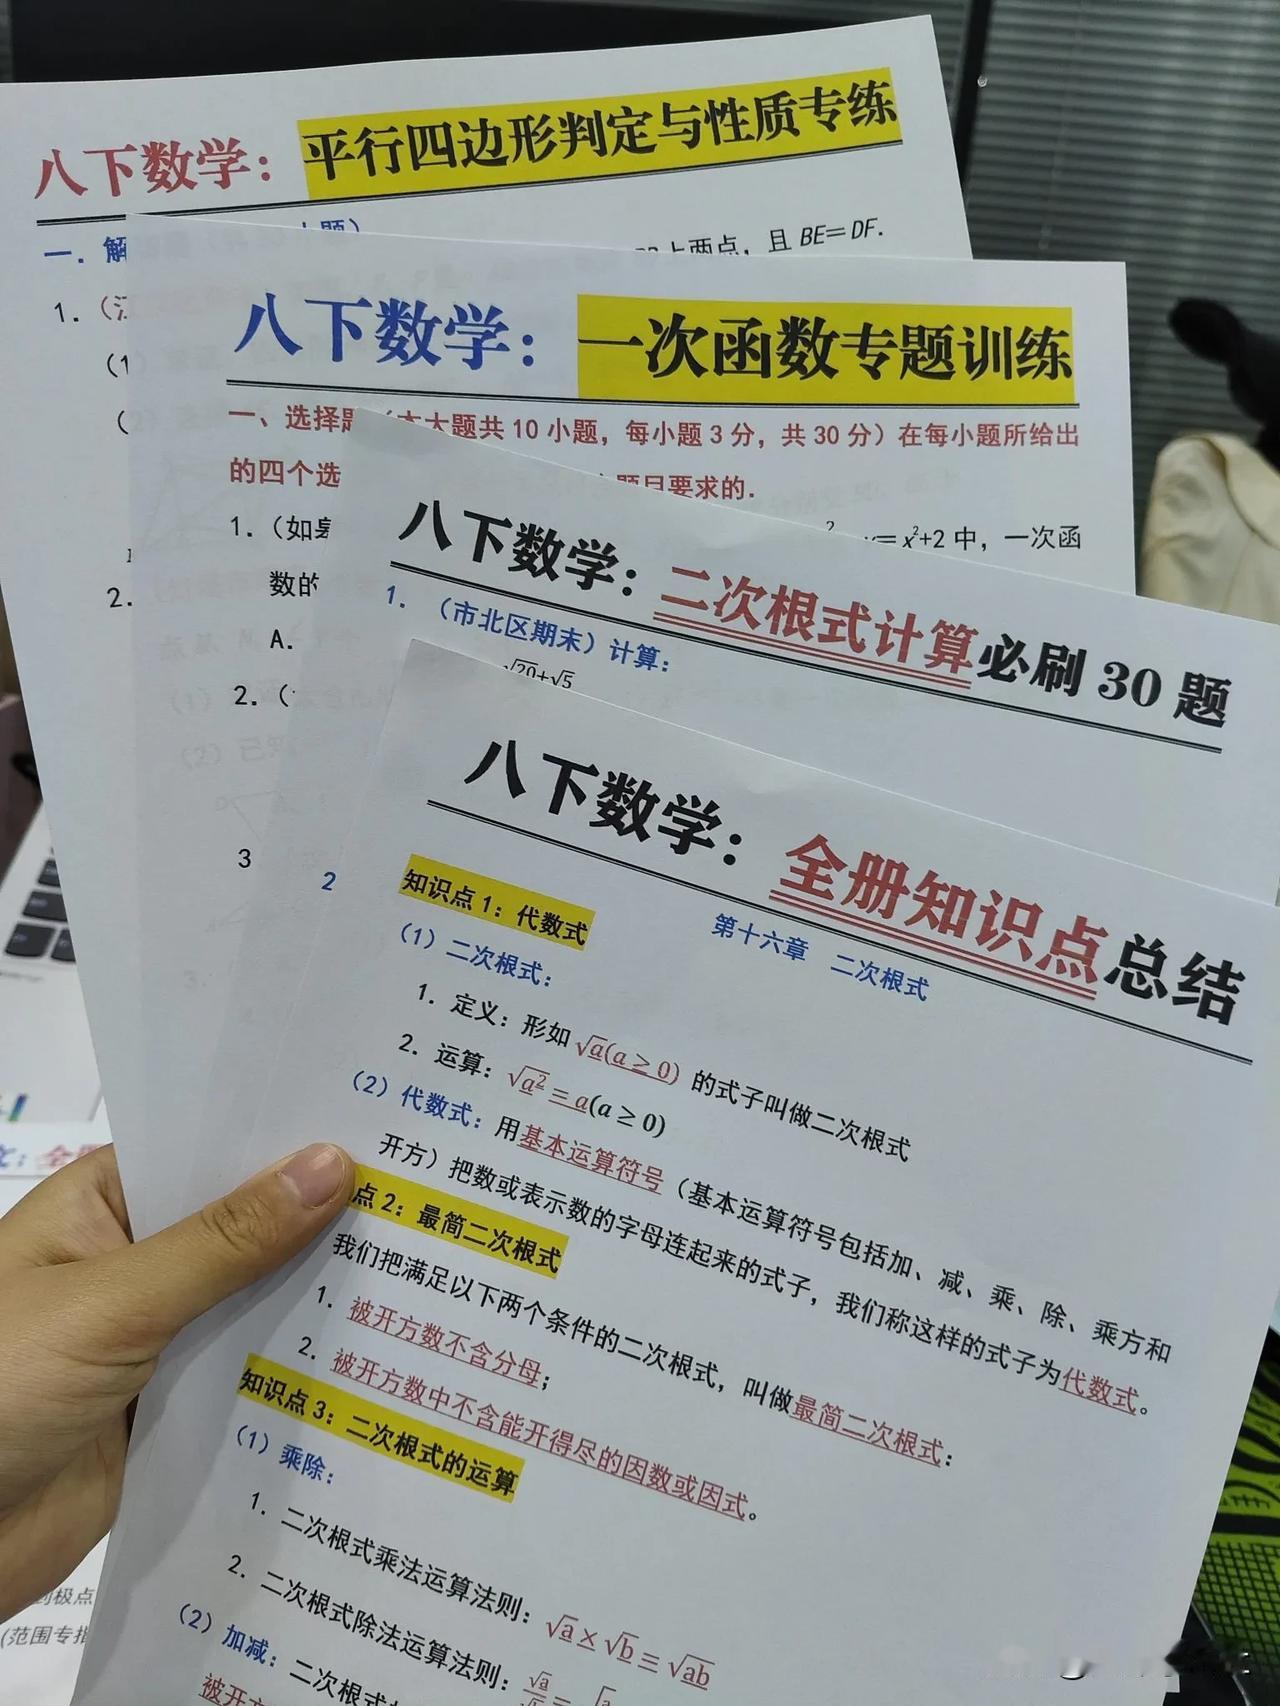 八下数学：平行四边形判定与性质专练
一．解
上两点，且 BE＝DF．
1．（江
（1）
（2）
2．
八下数学：一次函数专题训练
一、选择题（本大题共 10 小题，每小题 3 分，共 30 分）在每小题所给出
的四个选 题目要求的．
1．（如皋 y＝x²+2 中，一次函
数的
A．
2．（
3
八下数学：二次根式计算必刷 30 题
1．（市北区期末）计算：
√20+√5
2
八下数学：全册知识点总结
第十六章 二次根式
知识点 1：代数式
（1）二次根式：
1．定义：形如 √a(a ≥ 0) 的式子叫做二次根式
2．运算：√a² = a(a ≥ 0)
（2）代数式：用基本运算符号（基本运算符号包括加、减、乘、除、乘方和
开方）把数或表示数的字母连起来的式子，我们称这样的式子为代数式。
点 2：最简二次根式
我们把满足以下两个条件的二次根式，叫做最简二次根式：
1．被开方数不含分母；
2．被开方数中不含能开得尽的因数或因式。
知识点 3：二次根式的运算
（1）乘除：
1．二次根式乘法运算法则：√a × √b = √ab
2．二次根式除法运算法则：√a
（2）加减：二次根式
被开方
到极点
（范围专指